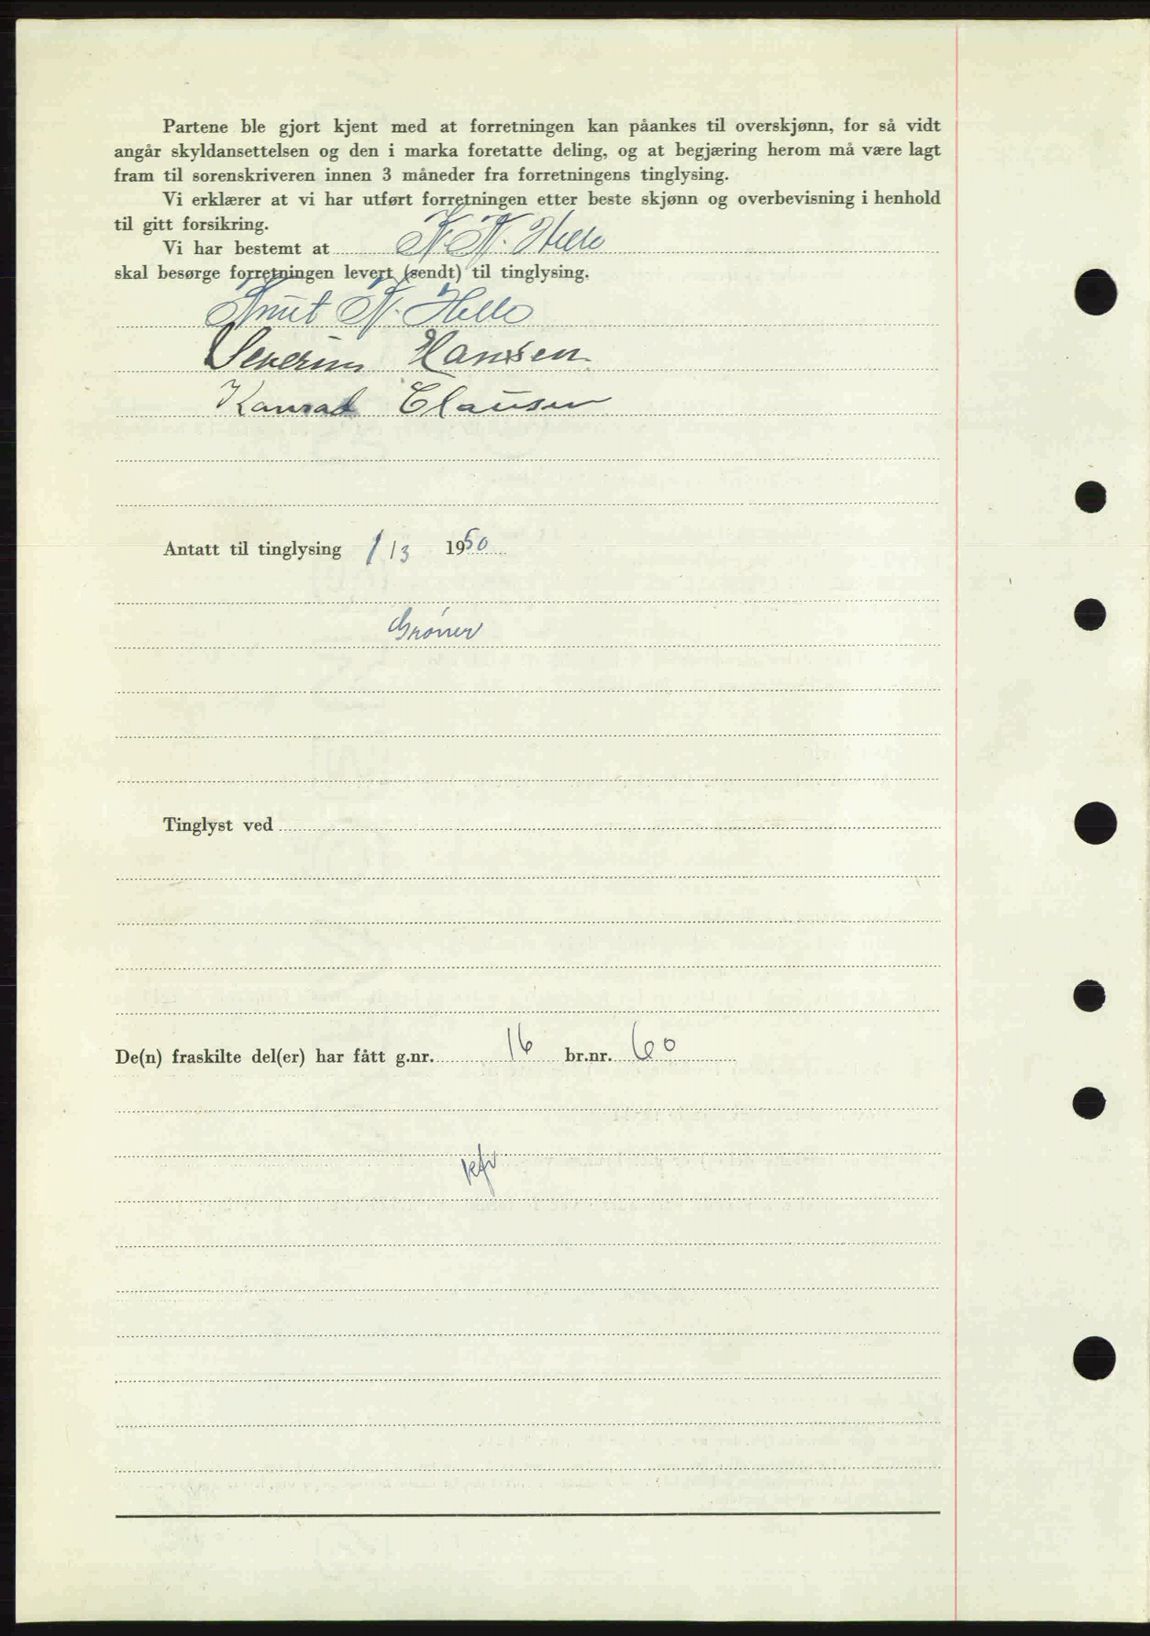 Partene ble gjort kjent med at forretningen kan påankes til overskjønn, for så vidt
angår skyldansettelsen og den i marka foretatte deling, og at begjæring herom må være lagt
fram til sorenskriveren innen 3 måneder fra forretningens tinglysing.
Vi erklærer at vi har utført forretningen etter beste skjønn og overbevisning i henhold
til gitt forsikring.
Vi har bestemt at K. N. Helle
skal besørge forretningen levert (sendt) til tinglysing.
Knut N. Helle
Severin Hanssen
Konrad Clausen
Antatt til tinglysing 1/3 1950
Grøner
Tinglyst ved
De(n) fraskilte del(er) har fått g.nr. 16 br.nr. 60